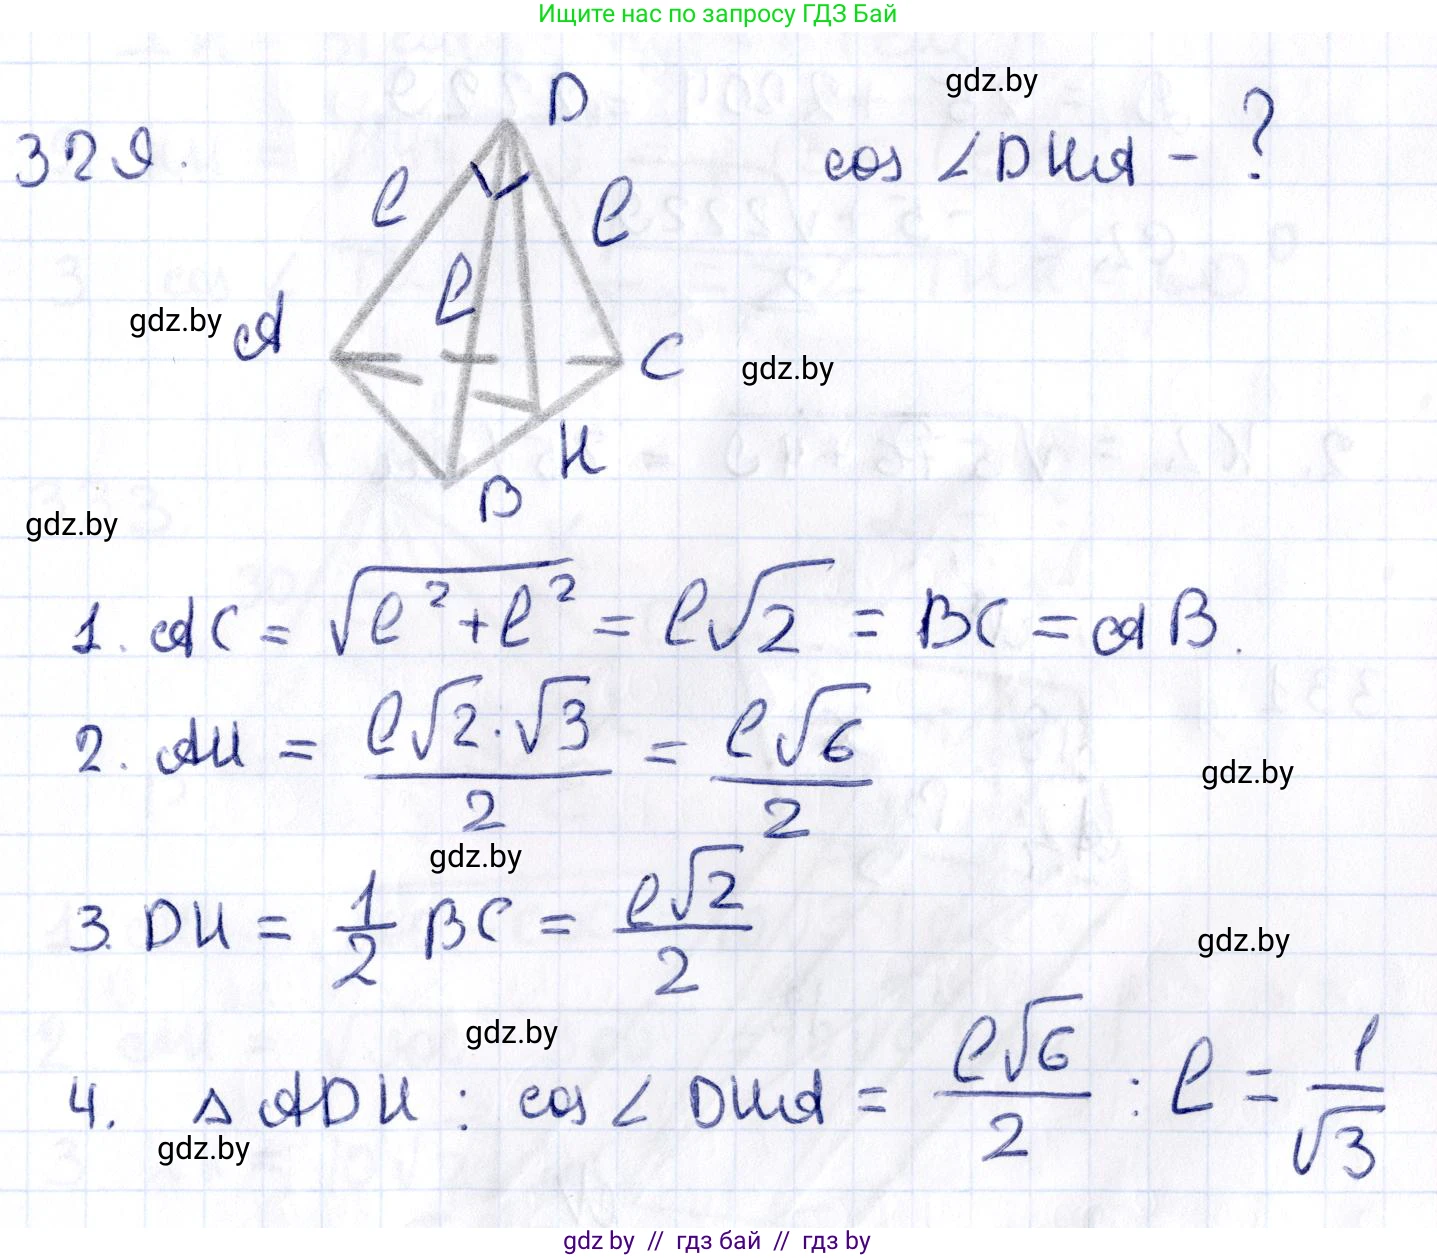 Ищите нас по запросу ГДЗ Бай
gdz.by
329.
D
cos ∠DHA - ?
l
l
l
gdz.by
A
C
gdz.by
H
B
gdz.by
1. AC = √(l² + l²) = l√2 = BC = AB.
2. AH = (l√2 · √3)/2 = l√6/2
gdz.by
gdz.by
3. DH = 1/2 BC = l√2/2
gdz.by
gdz.by
4. △ADH : cos ∠DHA = l√6/2 : l = 1/√3
gdz.by
gdz by // гдз бай // гдз by